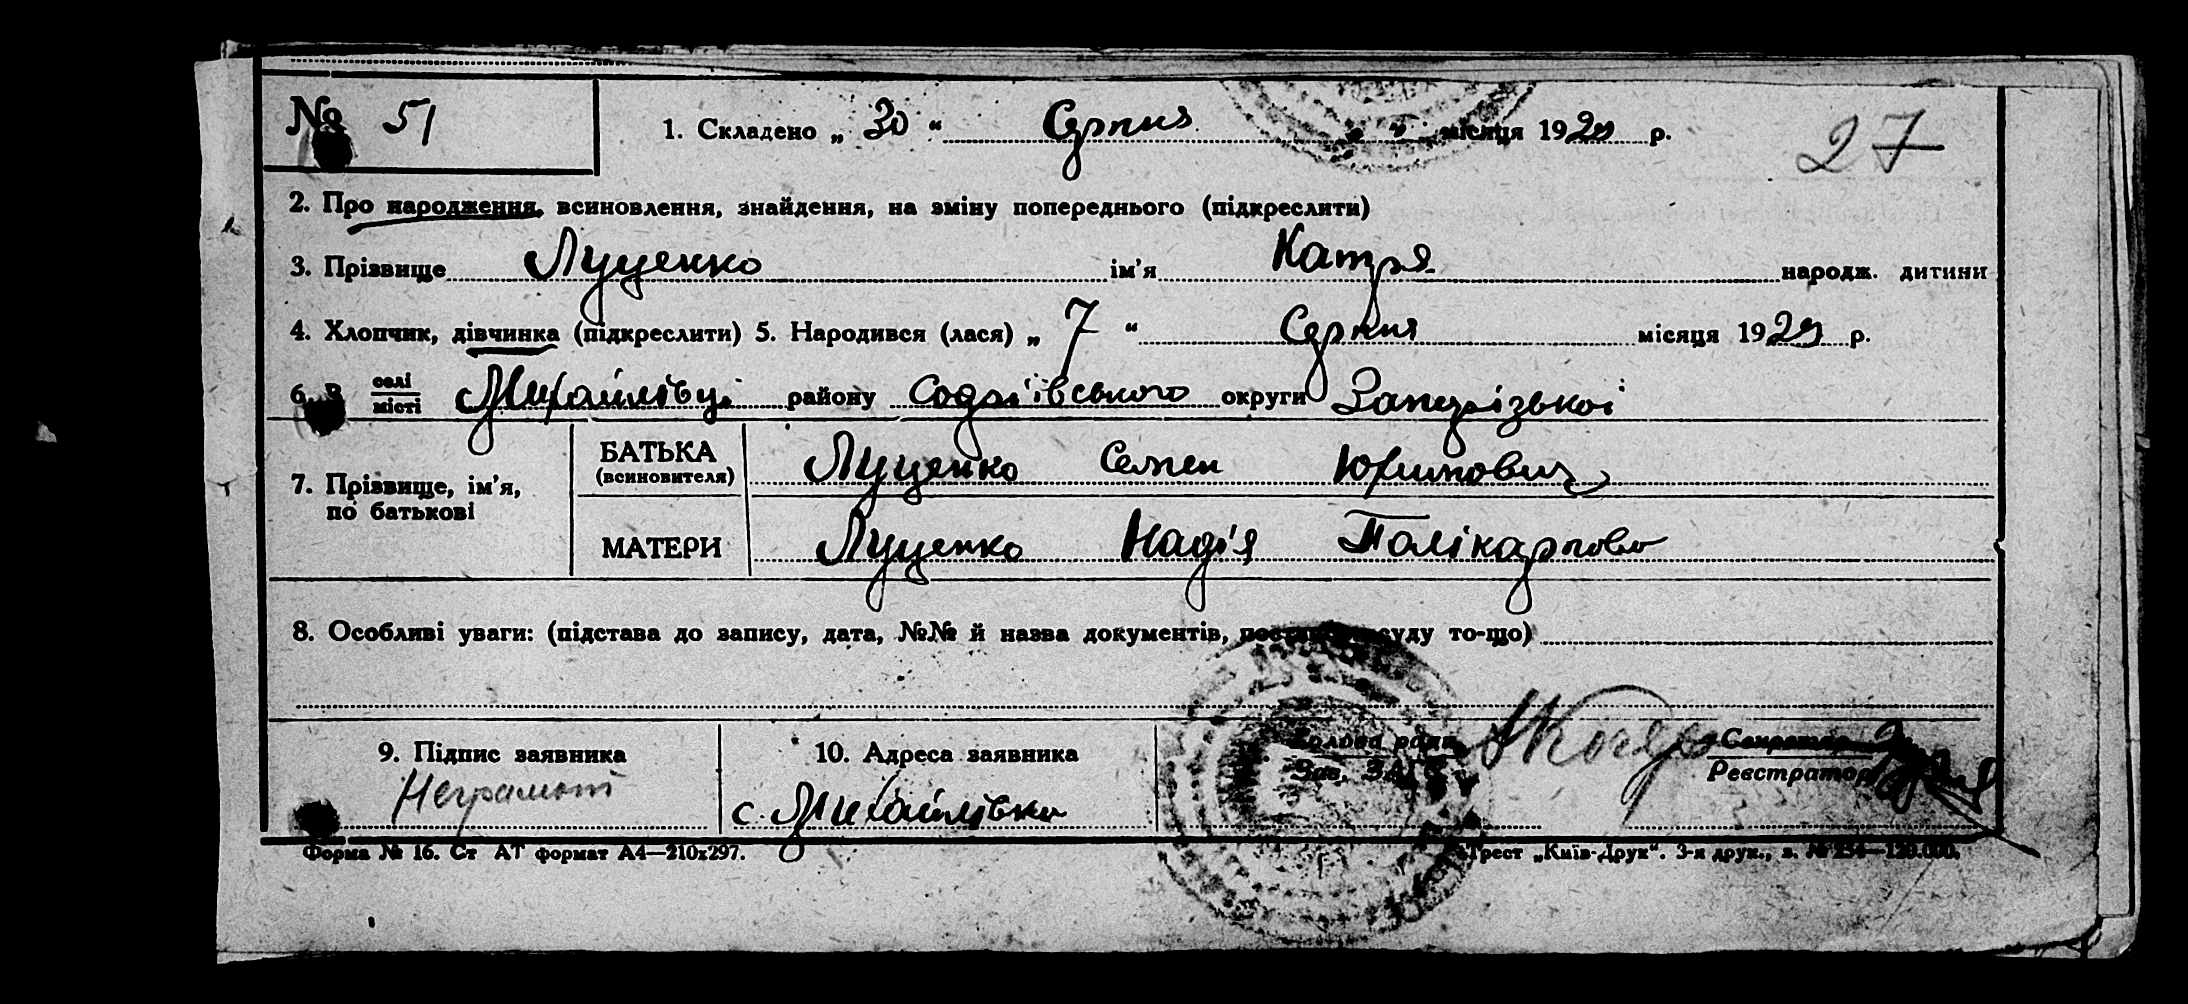 № 51
1. Складено „ 30 “ Серпня місяця 1929 р.
27
2. Про народження, всиновлення, знайдення, на зміну попереднього (підкреслити)
3. Прізвище Луценко ім'я Катря народж. дитини
4. Хлопчик, дівчинка (підкреслити) 5. Народився (лася) „ 7 “ Серпня місяця 1929 р.
6. В селі місті Михайлівці району Софіївського округи Запорізької
7. Прізвище, ім'я, по батькові
БАТЬКА (всиновителя) Луценко Семен Юхимович
МАТЕРИ Луценко Надія Полікарпова
8. Особливі уваги: (підстава до запису, дата, №№ й назва документів, постанова суду то-що)
9. Підпис заявника
Неграмот
10. Адреса заявника
с. Михайлівка
Голова ради
Зав. ЗАГС'у
Секретар
Реєстратор
Форма № 16. Ст АТ формат А4—210х297.
Трест „Київ-Друк“. 3-я друк., з. № 254—120.000.